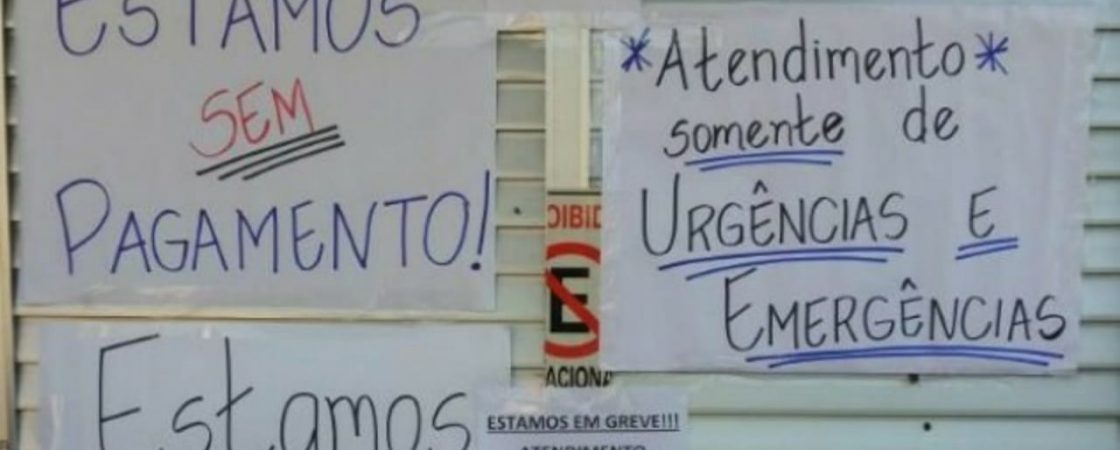 ESTAMOS
SEM
PAGAMENTO!
*Atendimento*
somente de
URGÊNCIAS E
EMERGÊNCIAS
OIBID
E
ACIONA
Estamos
ESTAMOS EM GREVE!!!
ATENDIMENTO